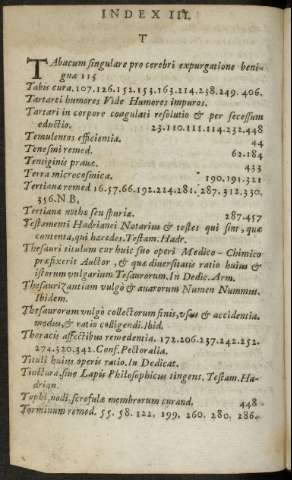 INDEX III.
T
TAbacum singulare pro cerebri expurgatione beni-
gna 115
Tabis cura. 107. 126. 152. 153. 163. 214. 238. 249. 406.
Tartarei humores Vide Humores impuros.
Tartari in corpore coagulati resolutio & per secessum
eductio. 23. 110. 111. 114. 232. 448
Temulentos efficientia. 44
Tenesmi remed. 62. 184
Tentiginis pravæ. 433
Terra microcosmica. 190. 191. 321
Tertianæ remed 16. 57. 66. 192. 214. 281. 287. 312. 330.
356. N.B.
Tertianæ nothæ seu spuria. 287. 457
Testamenti Hadrianei Notarius & testes qui sint, quæ
contenta, qui hæredes. Testam. Hadr.
Thesauri titulum cur huic suo operi Medico-Chimico
præfixerit Auctor, & quæ diversitatis ratio huius &
istorum vulgarium Tesaurorum. In Dedic. Arm.
Thesaurizantiam vulgò & avarorum Numen Nummus.
Ibidem.
Thesaurorum vulgò collectorum finis, usus & accidentia.
modus, & ratio colligendi. Ibid.
Thoracis affectibus remedentia. 172. 206. 237. 242. 252.
274. 320. 342. Conf. Pectoralia.
Tituli huius operis ratio. In Dedicat.
Tinctura, sive Lapis Philosophicus tingens. Testam. Ha-
drian.
Tophi, nodi, scrofulæ membrorum curand. 448
Torminum remed. 55. 58. 122, 199, 260, 280, 286